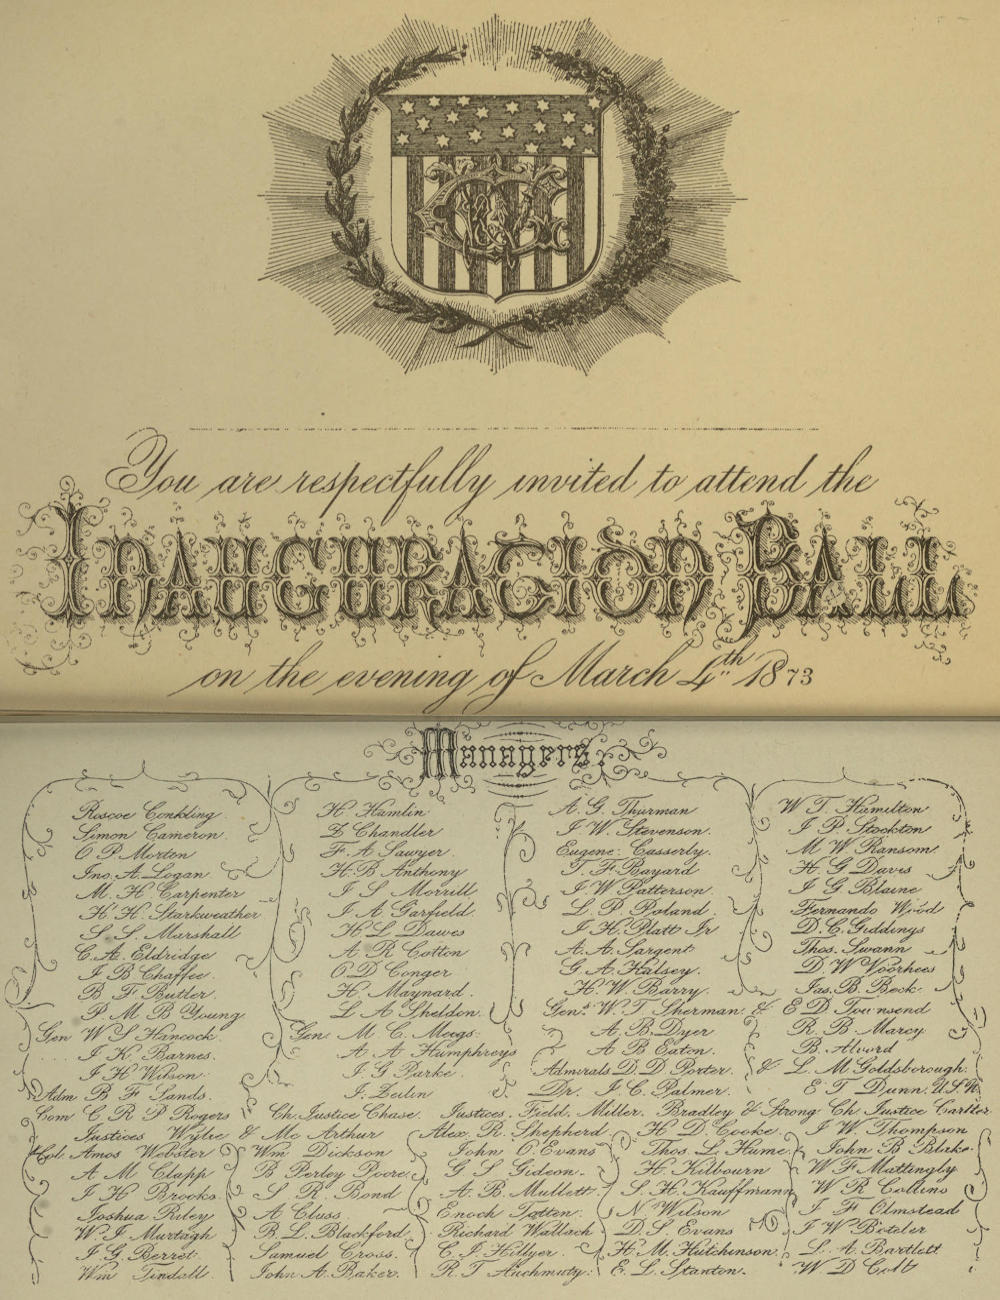 You are respectfully invited to attend the
INAUGURATION BALL
on the evening of March 4th 1873
Managers
Roscoe Conkling. H. Hamlin A. G. Thurman W T. Hamilton
Simon Cameron. Z Chandler J. W. Stevenson. J. P. Stockton
O P. Morton F. A. Sawyer. Eugene Casserly. M. W. Ransom.
Jno. A. Logan. H. B. Anthony T. F. Bayard H. G Davis
M. H Carpenter J. S. Morrill J. W. Patterson. J G Blaine
H. H. Starkweather J. A Garfield. L. P. Poland. Fernando Wood
S. S. Marshall H. L. Dawes J. H. Platt Jr D. C. Giddings
C. A. Eldridge A R Cotton A. A. Sargent Thos. Swann
J. B Chaffee. O. D Conger G. A. Halsey. D. W Voorhees
B. F. Butler. H. Maynard. H. W. Barry. Jas. B. Beck.
P. M. B Young L. A. Sheldon. Genls. W. T Sherman & E D Townsend
Gen W S Hancock. Gen M. C. Meigs. A. B. Dyer R. B Marcy
J. K. Barnes. A A Humphreys A B Eaton. B. Alvord
J H Wilson J. G Parke. Admirals D. D Porter. & L. M Goldsborough.
Adm B F Sands. J. Zeilin Dr. J. C. Palmer. E T Dunn. U.S.N.
Com C R P Rogers Ch. Justice Chase. Justices. Field. Miller. Bradley & Strong. Ch Justice Cartter
Justices Wylie & Mc Arthur Alex. R. Shepherd H D. Cooke. J W. Thompson
Col. Amos Webster Wm Dickson John O. Evans Thos. L. Hume John B Blake.
A M Clapp B Perley Poore. G S Gideon. H. Kilbourn W F Mattingly
J H Brooks. S R. Bond A. B. Mullett. S. H. Kauffmann W R Collins
Joshua Riley A Cluss. Enoch Totten. N. Wilson J F Olmstead
W. J Murtagh B. L. Blackford. Richard Wallach D. S Evans J W Boteler
J. G. Berret. Samuel Cross. C. J. Hillyer. H. M. Hutchinson. L. A. Bartlett
Wm Tindall. John A. Baker. R. T Auchmuty. E. L. Stanton. W D Colt